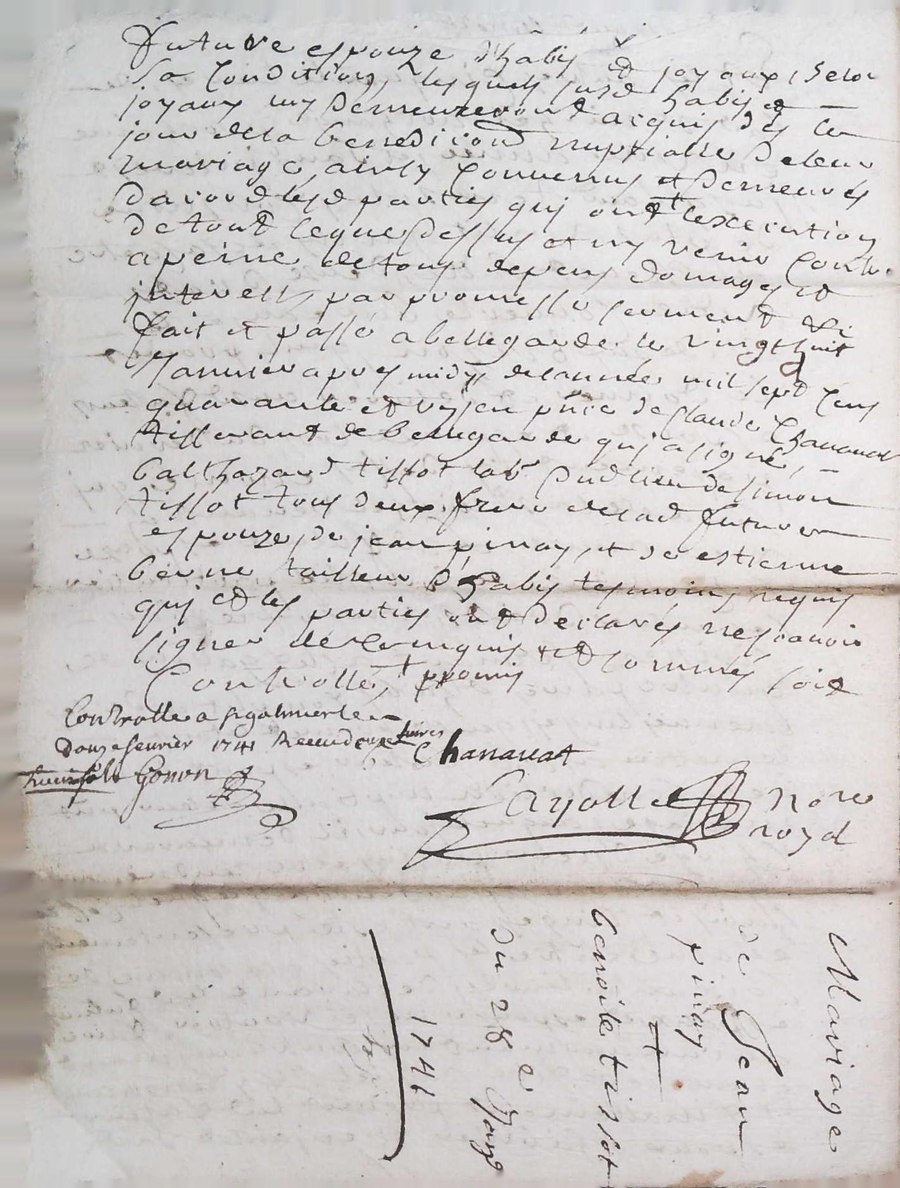 future espouze d'habis et joyaux selon
sa condition, lesquels susd habis et
joyaux luy demeureront acquis dès le
jour de la benediction nuptialle de leur
mariage, ainsy convenus et demeurés
d'acord lesd parties qui ont l'execution
de tout ce que dessus et ny venir contre
a peine de tous depens domages et
interests, par promesse serment &c
fait et passé a bellegarde le vingt huit
Janvier apres midy de l'année mil sept cens
quarante et un, en pnce de Claude Chavanat
tisserant de bellegarde qui a signé,
balthazard tissot lab^r dud lieu de simon
tissot tous deux frere de lad future
espouze, de jean pinay, et de estienne
berne tailleur d'habis tesmoins requis
qui et les parties ont declarés ne scavoir
signer de ce enquis et sommés soit
Controllé, + promis
Controllé a st galmier le
douze fevrier 1741 Receu douze livres
Gonon
Chanauat
Cayolle nore
royal
Mariage
de Jean
pinay
+
benoite tissot
du 28e Janv
1741